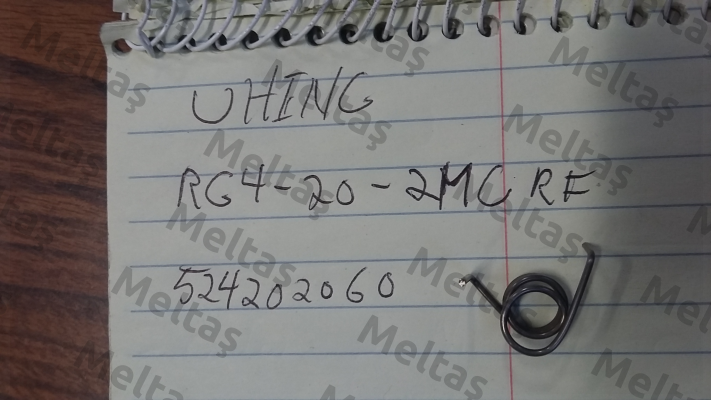 UHING
RG4-20-2MC RF
524202060
Meltaş